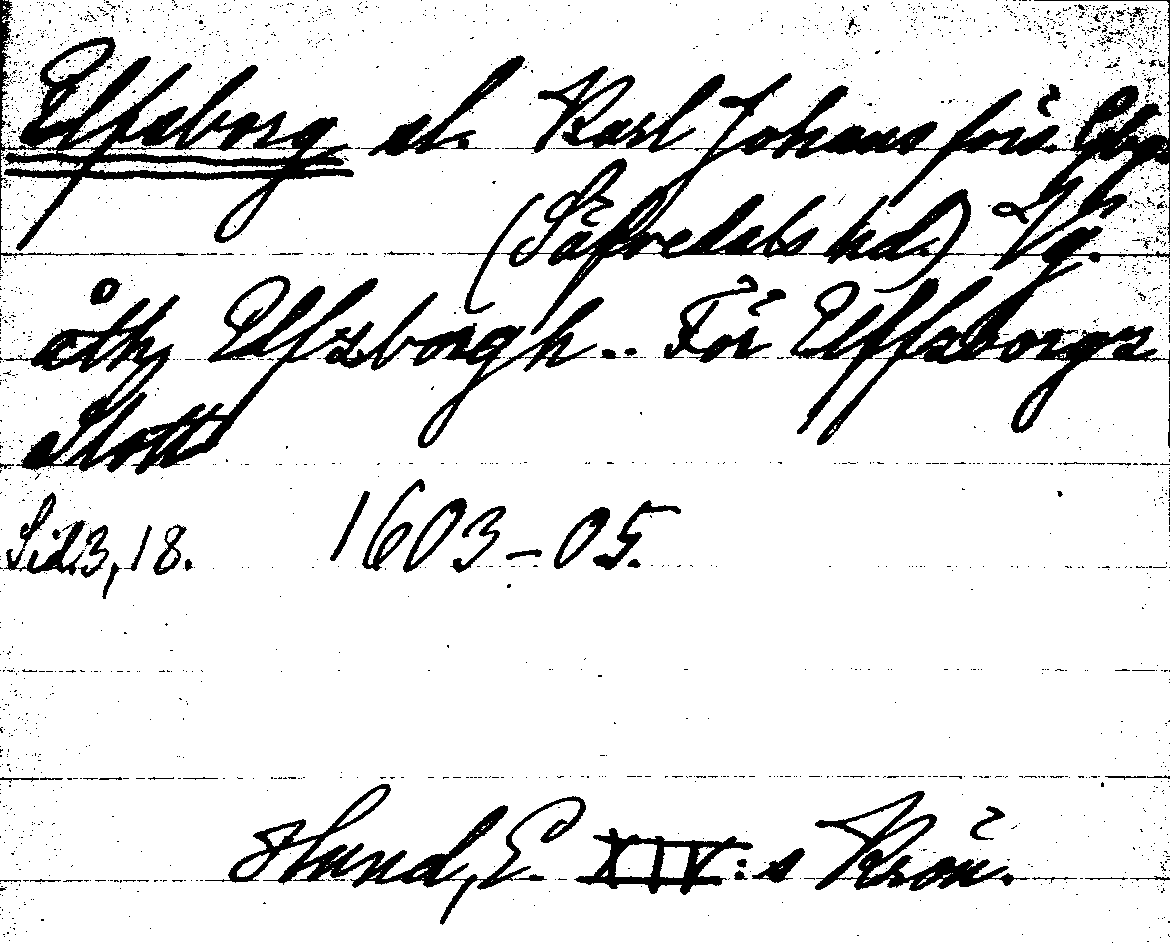 Elfsborg sl. Karl Johans förs. Gbg.
(Säfvedals hd.) Vg.
åthj Elfzborgh.. För Elffzborgz
Slott
Sid 3, 18. 1603-05.
Hund, E. XIV:s Krön.